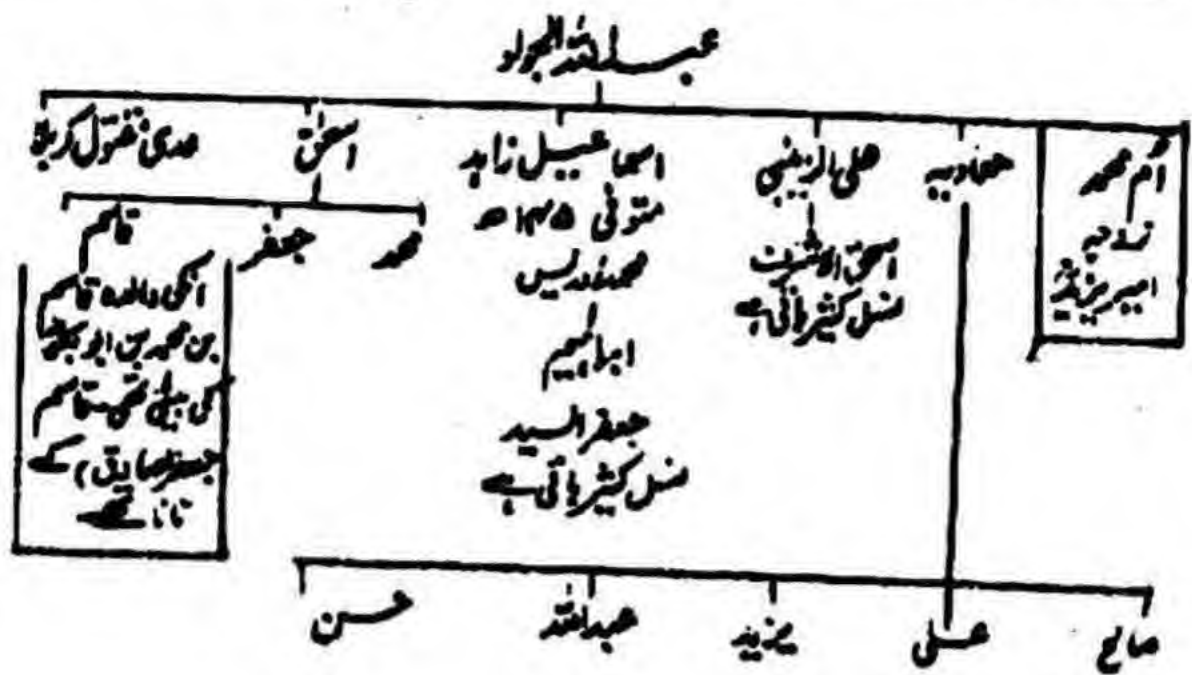 عبداللہ الجواد
اُم محمد
زوجہ
امیر یزیدؒ
معاویہ
علی الزینبی
اسحق الاشرف
نسل کثیر باقی ہے
اسماعیل زاہد
متوفی ۱۴۵ھ
ابراہیم
جعفر السید
نسل کثیر باقی ہے
اسحٰق
محمد
جعفر
قاسم
انکی والدہ قاسم
بن محمد بن ابوبکرؓ
کی بیٹی تھیں۔ قاسم
جعفر (صادق) کے
نانا تھے
عدی مقتول کربلا
صالح
علی
یزید
عبداللہ
حسن